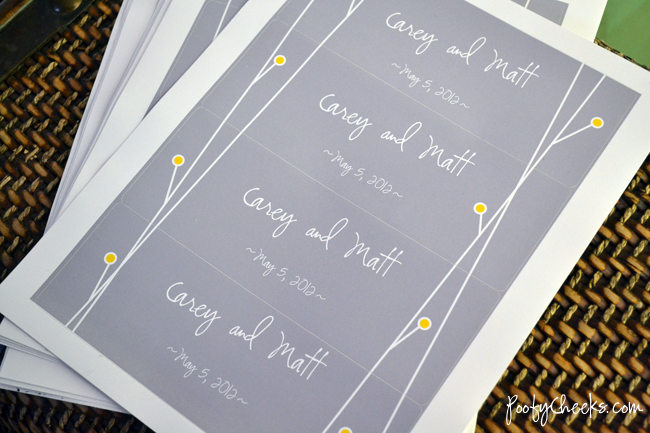 Carey and Matt
~May 5, 2012~
Carey and Matt
~May 5, 2012~
Carey and Matt
~May 5, 2012~
Carey and Matt
~May 5, 2012~
PootyCheeks.com